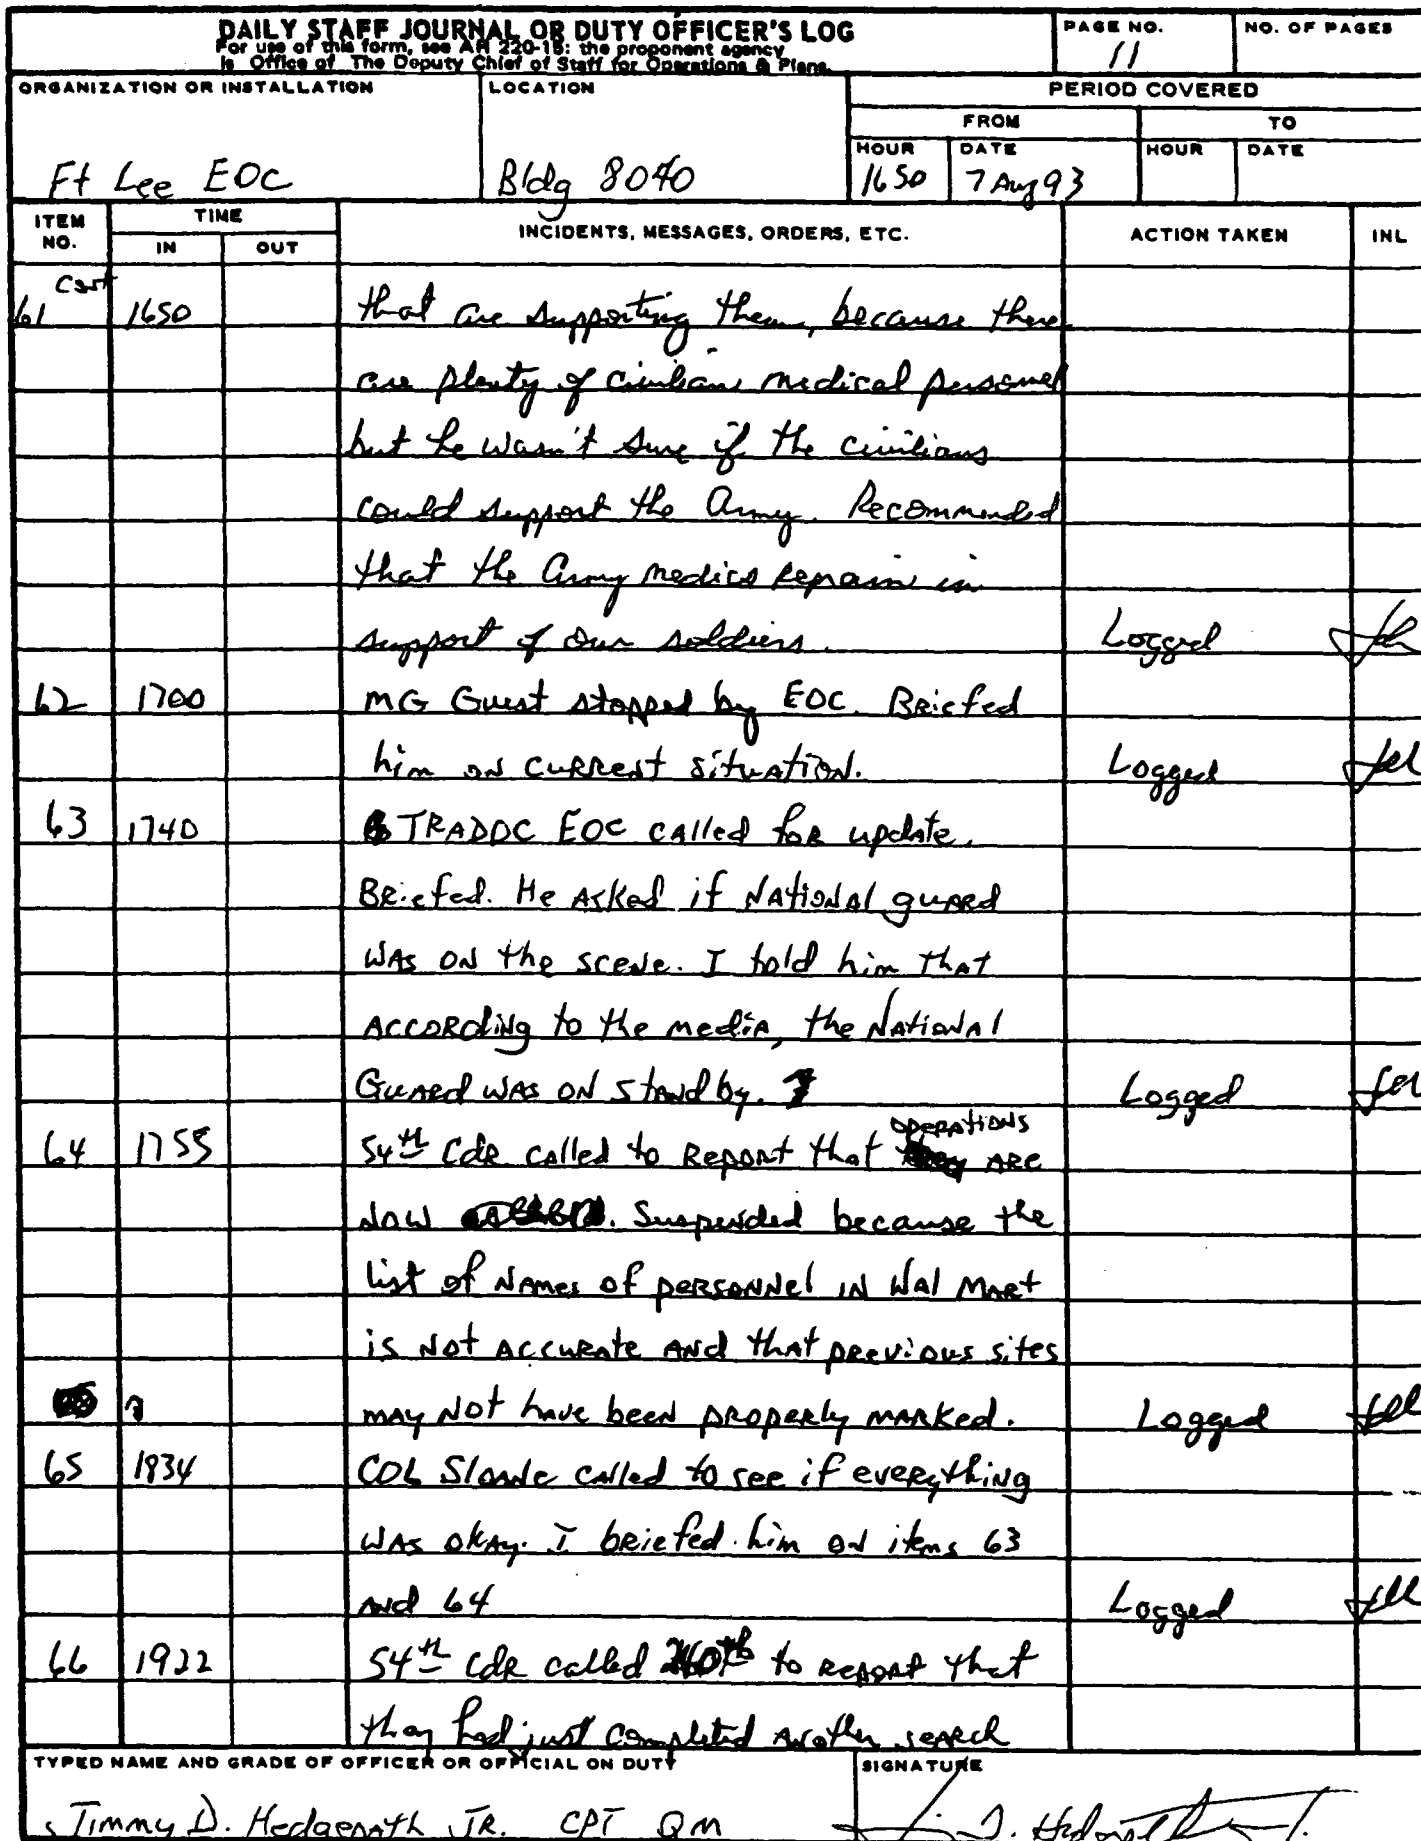 DAILY STAFF JOURNAL OR DUTY OFFICER'S LOG
For use of this form, see AR 220-15: the proponent agency
is Office of The Deputy Chief of Staff for Operations & Plans.
PAGE NO.
11
NO. OF PAGES
ORGANIZATION OR INSTALLATION
Ft Lee EOC
LOCATION
Bldg 8040
PERIOD COVERED
FROM
TO
HOUR
1650
DATE
7 Aug 93
HOUR
DATE
ITEM NO.
TIME
IN
OUT
INCIDENTS, MESSAGES, ORDERS, ETC.
ACTION TAKEN
INL
Cont
61 1650 that are supporting them, because there
are plenty of civilian medical personnel
but he wasn't sure if the civilians
could support the Army. Recommended
that the Army medics remain in
support of our soldiers. Logged
62 1700 MG Guest stopped by EOC. Briefed
him on current situation. Logged
63 1740 TRADOC EOC called for update.
Briefed. He asked if National guard
was on the scene. I told him that
according to the media, the National
Guard was on standby. Logged
operations
64 1755 54th Cdr called to report that are
now . Suspended because the
list of names of personnel in Wal Mart
is not accurate and that previous sites
may not have been properly marked. Logged
65 1834 COL Sloane called to see if everything
was okay. I briefed him on items 63
and 64 Logged
66 1922 54th Cdr called to report that
they had just completed another search
TYPED NAME AND GRADE OF OFFICER OR OFFICIAL ON DUTY
Jimmy D. Hedgepath JR. CPT QM
SIGNATURE